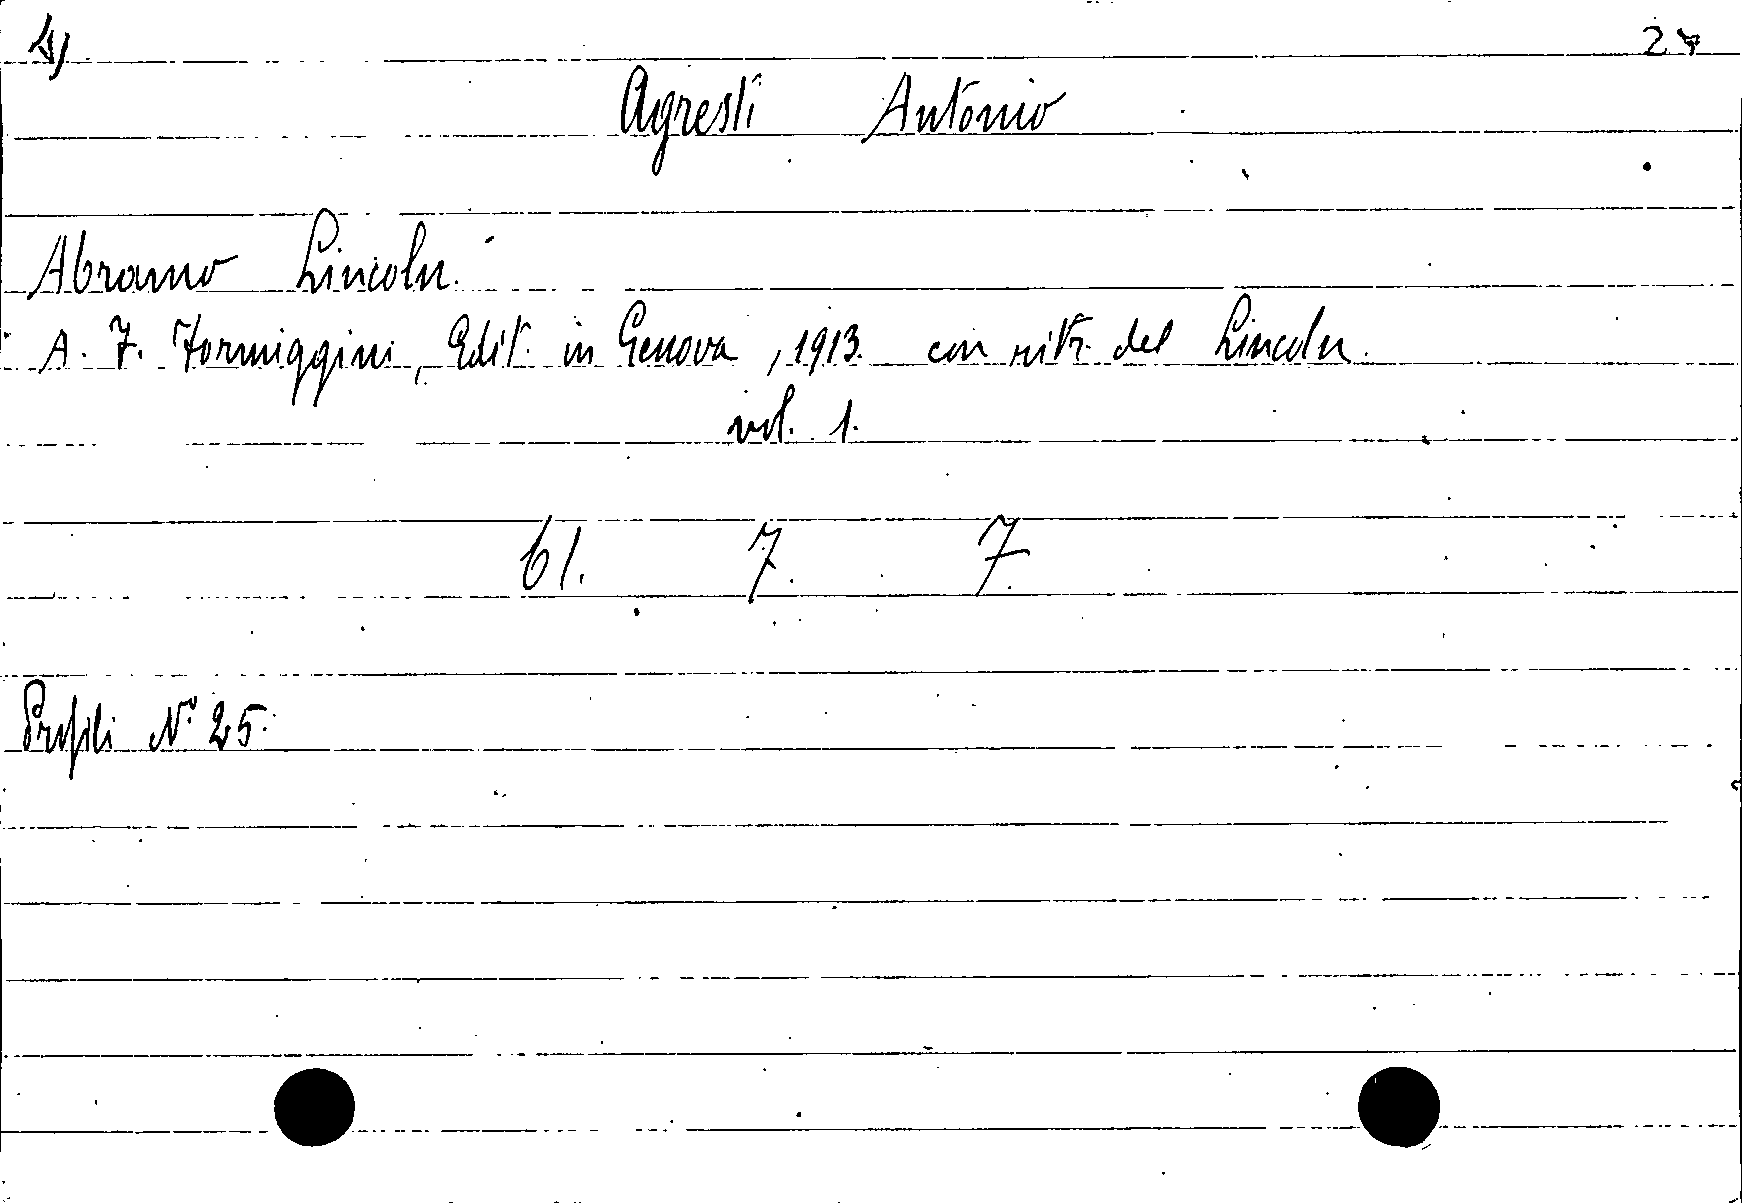 27
Agresti Antonio
Abramo Lincoln.
A. F. Formiggini, Edit. in Genova, 1913. con ritr. del Lincoln.
vol. 1.
61. 7. 7.
Profili N.° 25.